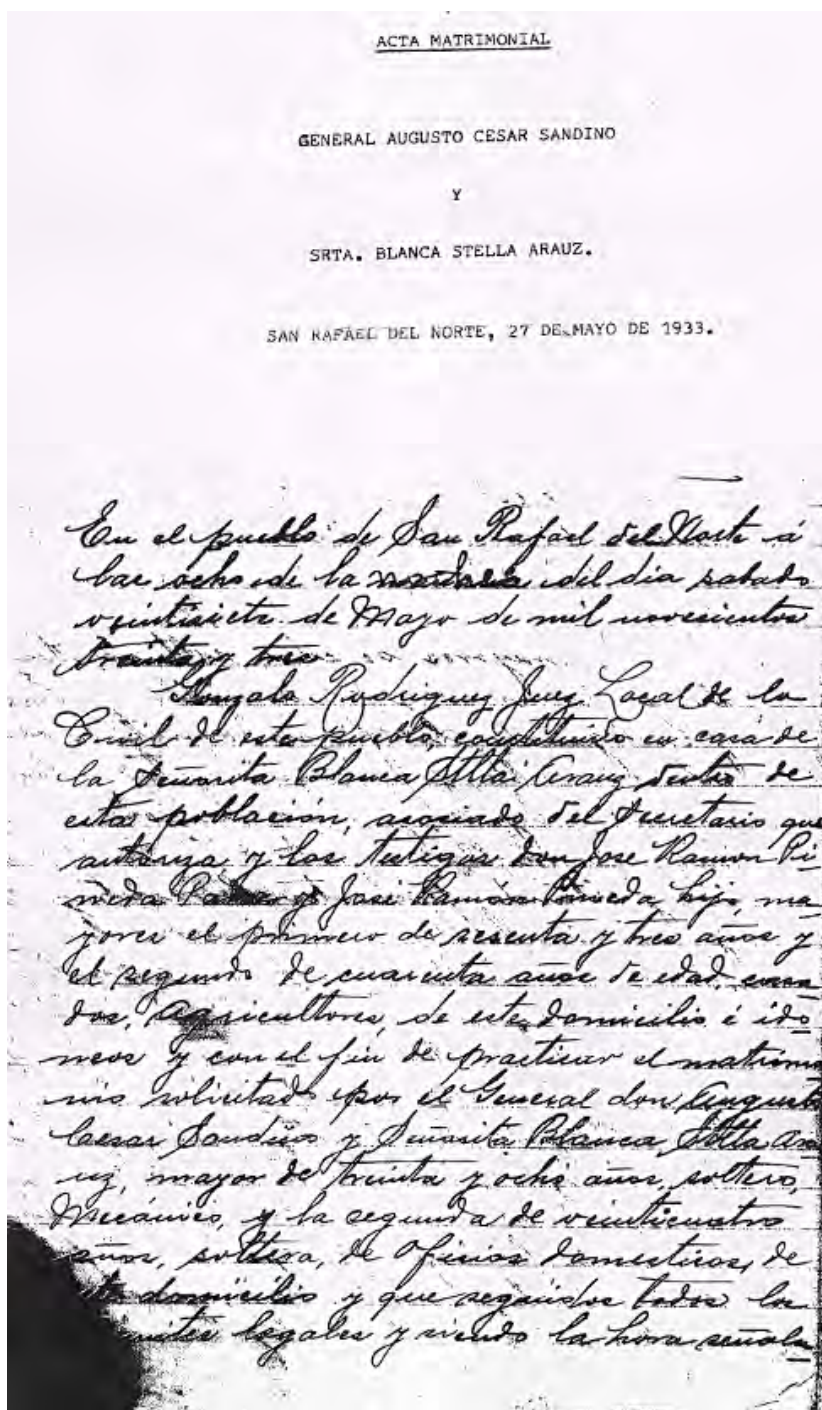 ACTA MATRIMONIAL
GENERAL AUGUSTO CESAR SANDINO
Y
SRTA. BLANCA STELLA ARAUZ.
SAN RAFAEL DEL NORTE, 27 DE MAYO DE 1933.
En el pueblo de San Rafael del Norte á
las ocho de la del dia sabado
veintisiete de Mayo de mil novecientos
treinta y tres
Gonzalo Rodriguez Juez Local de lo
Civil de este pueblo, constituido en casa de
la Señorita Blanca Stella Arauz dentro de
esta población, asociado del Secretario que
autoriza y los testigos don Jose Ramon Pi
neda y José Ramón Pineda hijo, ma
yores el primero de sesenta y tres años y
el segundo de cuarenta años de edad, casa
dos, Agricultores, de este domicilio é ido
neos y con el fin de practicar el matrimo
nio solicitado por el General don Augusto
Cesar Sandino y Señorita Blanca Stella Ara
uz, mayor de treinta y ocho años, soltero,
Mecánico, y la segunda de veinticuatro
años, soltera, de oficios domesticos, de
domicilio y que seguidos todos los
legales y siendo la hora señala